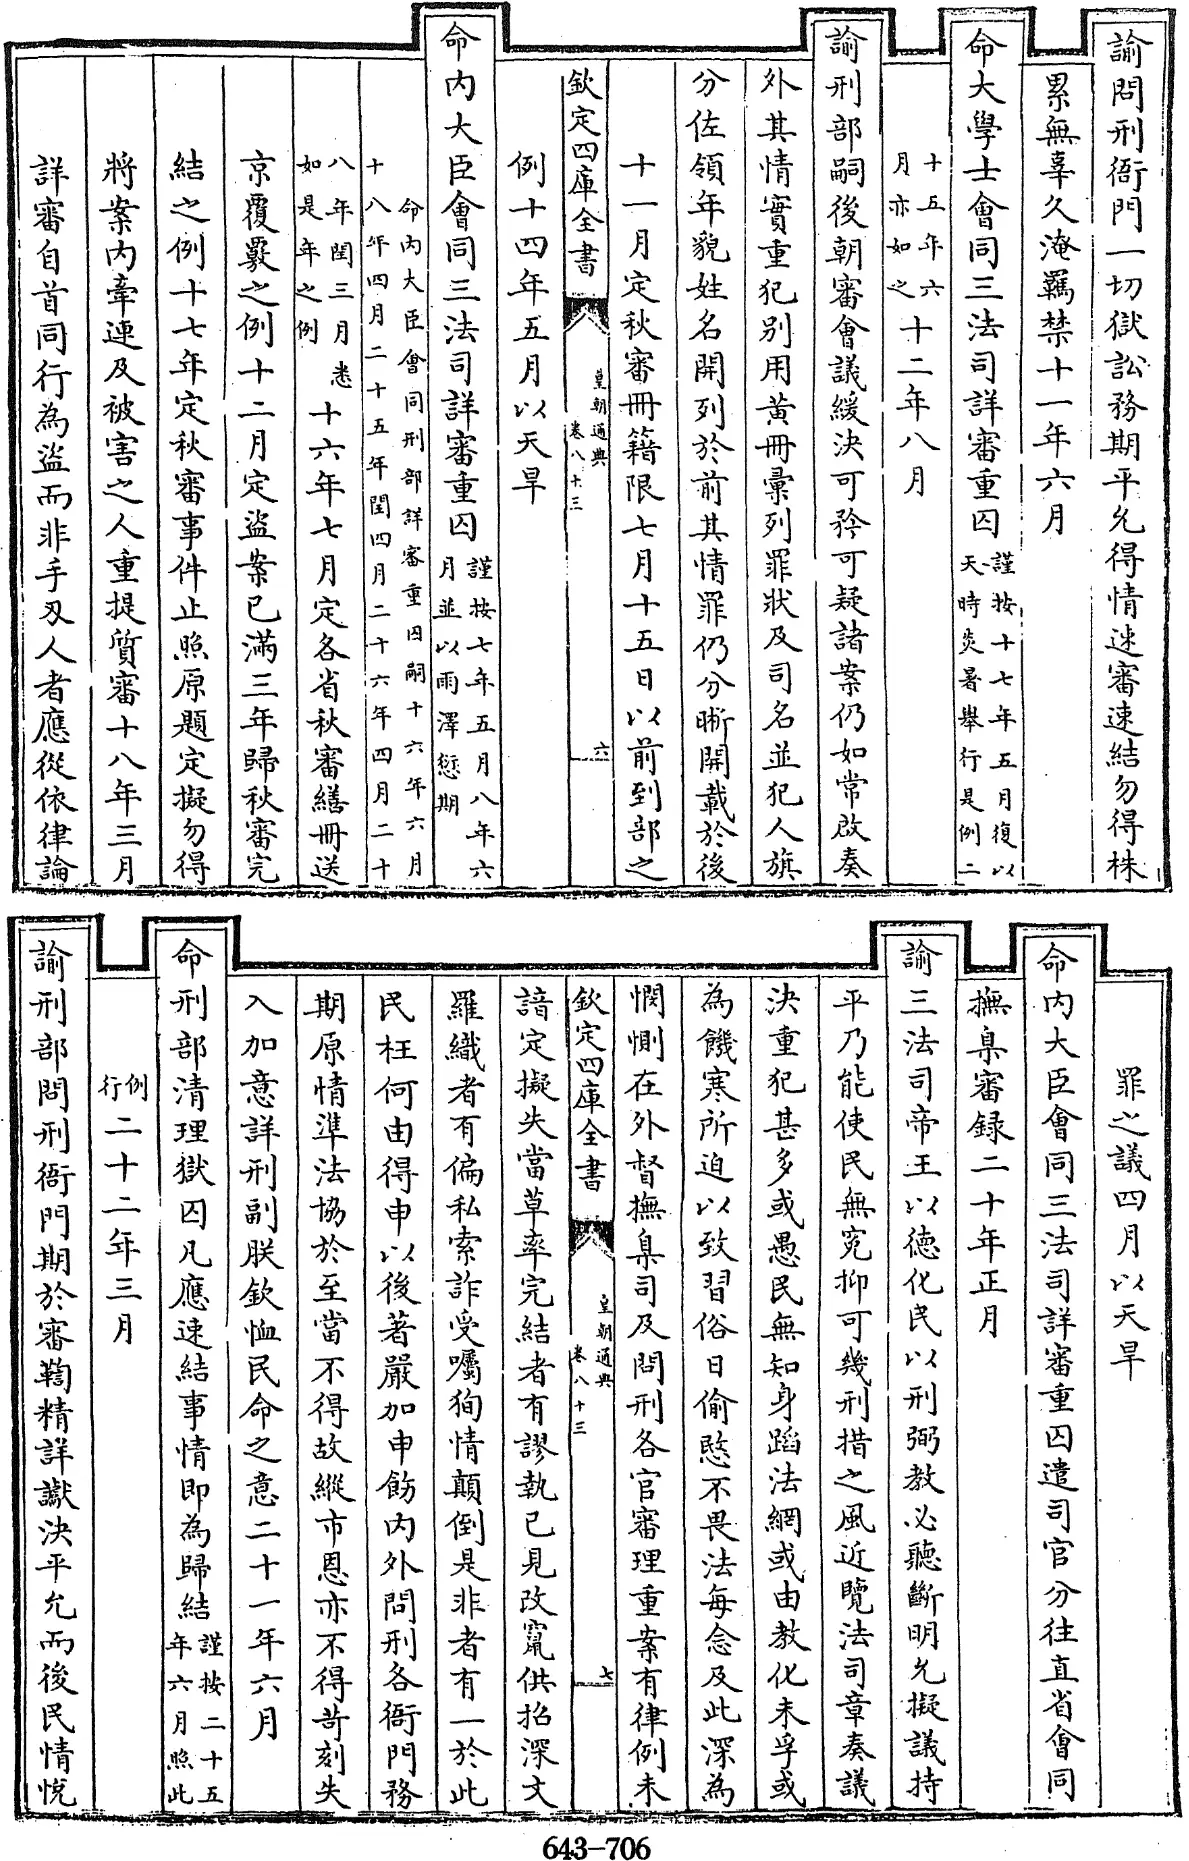 諭問刑衙門一切獄訟務期平允得情速審速結勿得株
累無辜久淹羈禁十一年六月
命大學士會同三法司詳審重囚謹按十七年五月復以天時炎暑舉行是例二
十五年六月亦如之十二年八月
諭刑部嗣後朝審會議緩決可矜可疑諸案仍如常啟奏
外其情實重犯别用黄冊彙列罪狀及司名並犯人旗
分佐領年貌姓名開列於前其情罪仍分晰開載於後
十一月定秋審冊籍限七月十五日以前到部之
欽定四庫全書
皇朝通典
卷八十三
六
例十四年五月以天旱
命内大臣會同三法司詳審重囚謹按七年五月八年六月並以雨澤愆期
命内大臣會同刑部詳審重囚嗣十六年六月十八年四月二十五年閏四月二十六年四月二十
八年閏三月悉如是年之例十六年七月定各省秋審繕冊送
京覆覈之例十二月定盜案已滿三年歸秋審完
結之例十七年定秋審事件止照原題定擬勿得
將案内牽連及被害之人重提質審十八年三月
詳審自首同行為盜而非手刃人者應從依律論
罪之議四月以天旱
命内大臣會同三法司詳審重囚遣司官分往直省會同
撫臬審録二十年正月
諭三法司帝王以德化民以刑弼教必聽斷明允擬議持
平乃能使民無寃抑可幾刑措之風近覽法司章奏議
決重犯甚多或愚民無知身蹈法網或由教化未孚或
為饑寒所迫以致習俗日偷愍不畏法每念及此深為
憫惻在外督撫臬司及問刑各官審理重案有律例未
欽定四庫全書
皇朝通典
卷八十三
七
諳定擬失當草率完結者有謬執已見改竄供招深文
羅織者有偏私索詐受囑狥情顛倒是非者有一於此
民枉何由得申以後著嚴加申飭内外問刑各衙門務
期原情準法協於至當不得故縱市恩亦不得苛刻失
入加意詳刑副朕欽恤民命之意二十一年六月
命刑部清理獄囚凡應速結事情即為歸結謹按二十五年六月照此
例行二十二年三月
諭刑部問刑衙門期於審鞫精詳讞決平允而後民情悦
643-706